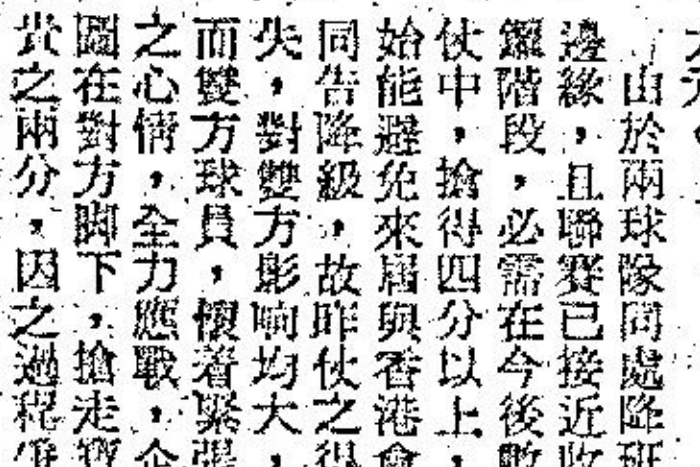 由於兩球隊同處降班
邊緣，且聯賽已接近收
鑼階段，必需在今後數
仗中，搶得四分以上，
始能避免來屆與香港會
同告降級，故昨仗之得
失，對雙方影响均大，
而雙方球員，懷着緊張
之心情，全力應戰，企
圖在對方脚下，搶走寶
貴之兩分，因之過程